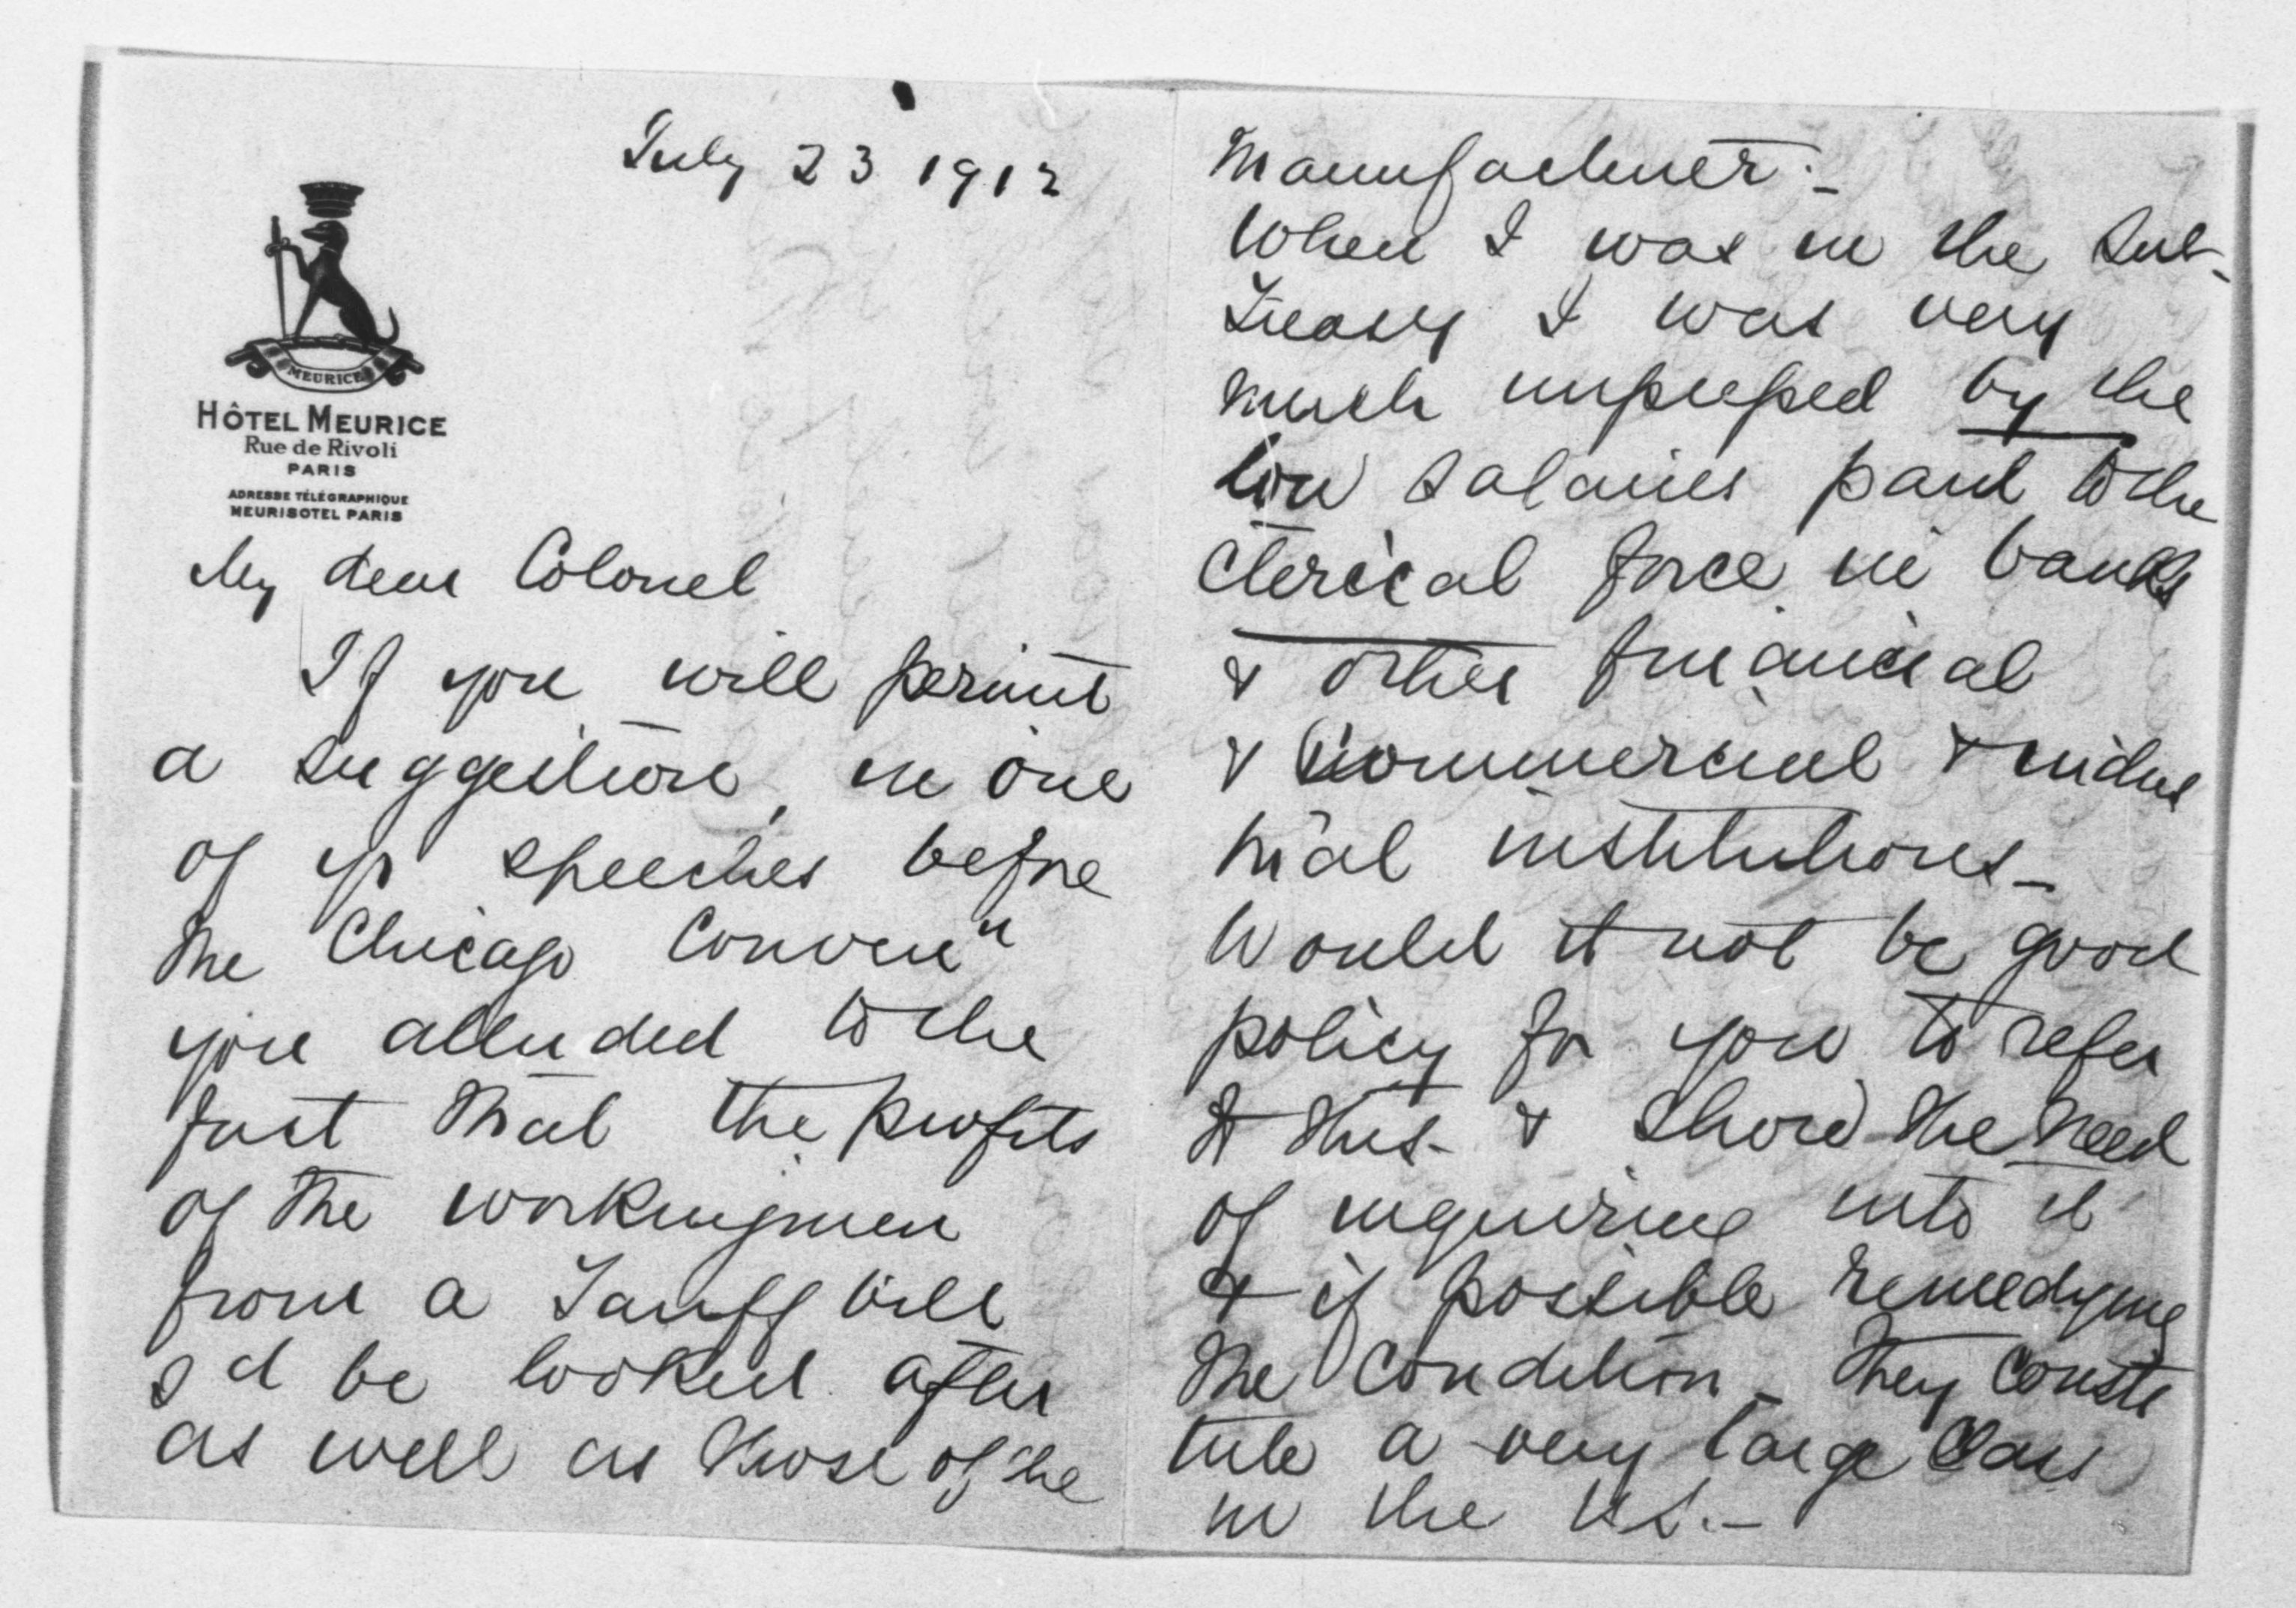 July 23 1912
MEURICE
HÔTEL MEURICE
Rue de Rivoli
PARIS
ADRESSE TÉLÉGRAPHIQUE
MEURISOTEL PARIS
My dear Colonel
If you will permit
a suggestion, in one
of yr speeches before
the Chicago Convenn
you alluded to the
fact that the profits
of the workingmen
from a Tariff bill
sd be looked after
as well as those of the
manufacturer.-
When I was in the Sub-
Treasy I was very
much impressed by the
low salaries paid to the
clerical force in banks
& other financial
& commercial & indus
trial institutions-
Would it not be good
policy for you to refer
to this- & show the need
of inquiring into it
& if possible remedying
the condition - They consti
tute a very large class
in the U.S.-